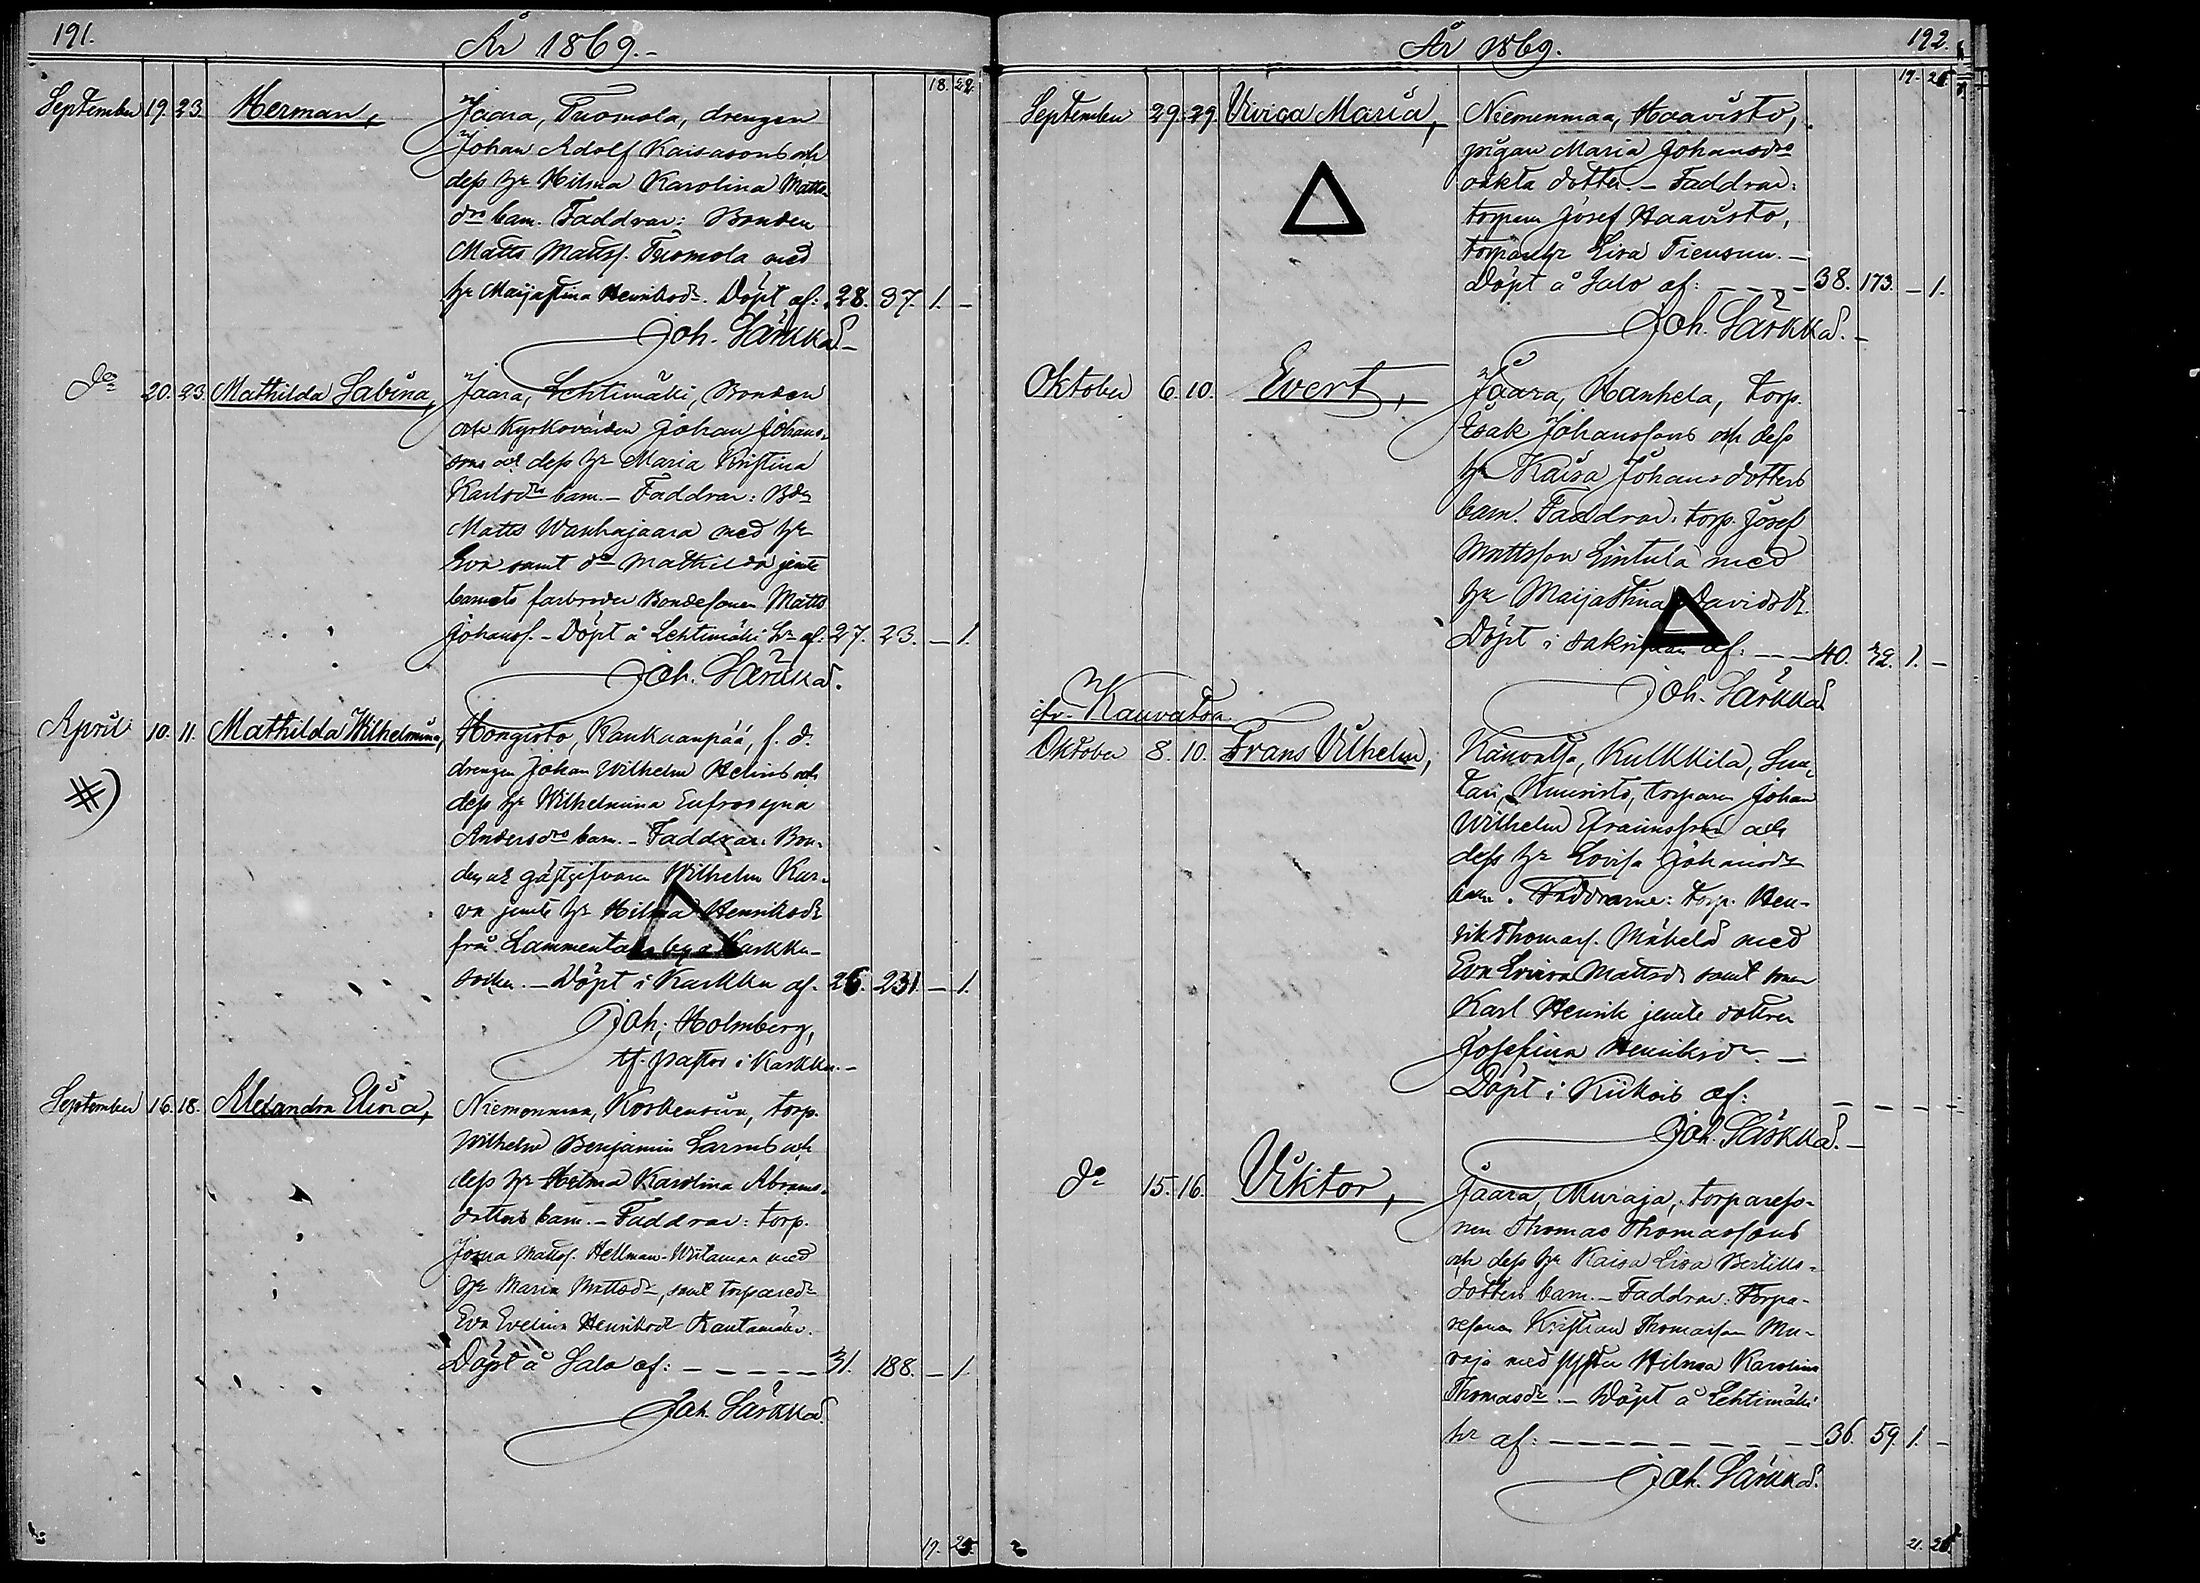 191.
År 1869.-
18. 22.
September 19. 23. Herman, Jaara, Tuomola, drengen
Johan Adolf Kaisasons och
dess hr Hilma Karolina Matts
drs barn. Faddrar: Bonden
Matts Mattss. Tuomola med
hr Maijastina Henriksdr. Döpt af: 28. 37. 1. -
Joh. Särkkä.-
do 20. 23. Mathilda Sabina, Jaara, Lehtimäki, Bonden
och Kyrkovärden Johan Johans-
sons och dess hr Maria Kristina
Karlsdrs barn. - Faddrar: Bdn
Matts Wanhajaara med hr
Eva samt dr Mathilda jemte
barnets farbroder Bondesonen Matts
Johanss. - Döpt å Lehtimäki hr af: 27. 23. - 1.
Joh. Särkkä.
April 10. 11. Mathilda Wilhelmina, Hongisto, Kaukaanpää, f. d.
#) drengen Johan Wilhelm Helins och
dess hr Wilhelmina Eufrosyna
Andersdrs barn. - Faddrar: Bon-
den och gästgifvaren Wilhelm Kur-
va jemte hr Hilma Henriksdr
från Lammentaka by a Karkku-
socken. - Döpt i Karkku af. 26. 231. - 1.
Joh; Holmberg,
tf. pastor i Karkku.-
September 16. 18. Alexandra Elina, Niemenmaa, Koskensuu, torp.
Wilhelm Benjamin Larsons och
dess hr Helma Karolina Abrams-
dotters barn. - Faddrar: torp.
Josua Mattss. Hellman-Wiitamaa med
hr Maria Mattsdr, samt torparedr
Eva Evelina Henriksdr Rautamäki.
Döpt å Salo af: - - - - - 31. 188. - 1.
Joh. Särkkä.
19. 25.
År 1869.
192.
19. 25.
September 29. 29. Viviga Maria, Niemenmaa, Haavisto,
pigan Maria Johansdrs
oäkta dotter. - Faddrar:
torparen Josef Haavisto,
torparehr Lisa Tiensuu. -
Döpt å Salo af: - - - - 38. 173. - 1.
Joh. Särkkä.-
Oktober 6. 10. Evert, Jaara, Hanhela, torp.
Isak Johanssons och dess
hr Kaisa Johansdotters
barn. Faddrar: torp. Josef
Mattsson Lintula med
hr Maijastina Davidsdr.
Döpt i sakristian af: - - 40. 32. 1. -
Joh. Särkkä
ifr. Kauvatsa
Oktober 8. 10. Frans Vilhelm, Kauvatsa, Kulkkila,
torparen Johan
Wilhelm Efraimsson och
dess hr Lovisa Johansdr
barn. Faddrarne: torp. Hen-
rik Thomass. Mäkelä med
Eva Lovisa Mattsdr samt son
Karl Henrik jemte dottren
Josefina Henriksdr. -
Döpt i Kiikois af: - - - -
Joh. Särkkä.-
do 15. 16. Viktor, Jaara, Muraja, torpareso-
nen Thomas Thomassons
och dess hr Kaisa Lisa Bertills-
dotters barn. - Faddrar: Torpa-
resonen Kristian Thomasson Mu-
raja med syster Hilma Karolina
Thomasdr. - Döpt å Lehtimäki
hr af: - - - - - - - - 36. 59. 1. -
Joh. Särkkä.
21. 26.